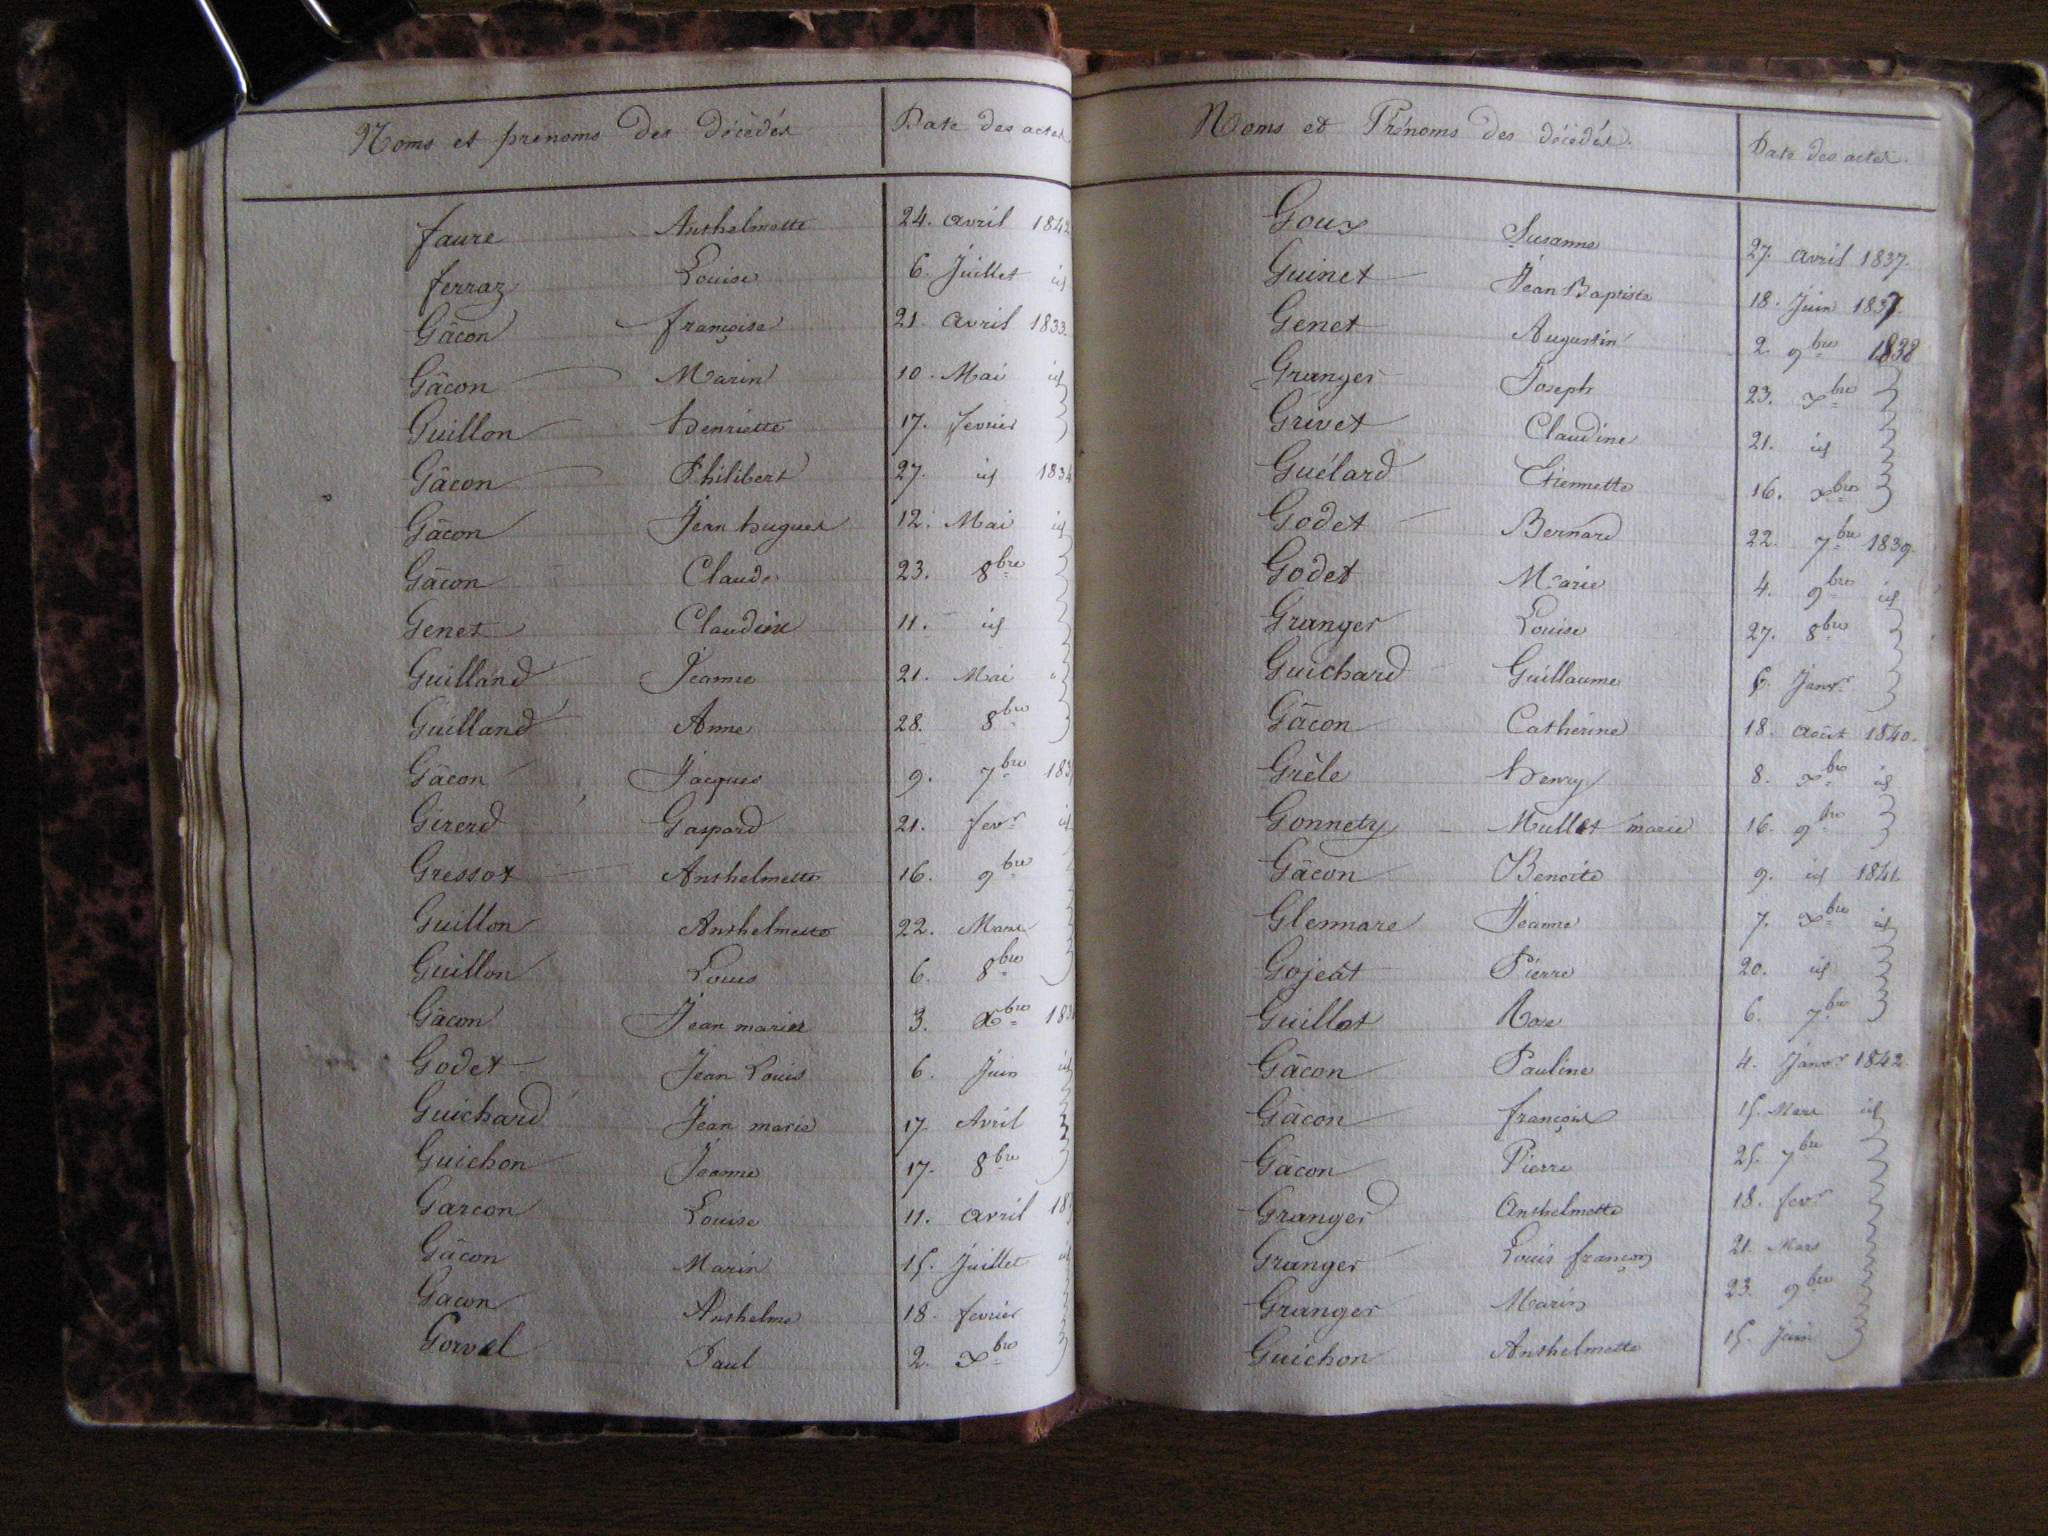 Noms et prenoms des décédés Date des actes
faure Anthelmette 24. avril 1842
ferraz Louise 6. Juillet id
Gâcon françoise 21. avril 1833.
Gâcon Marin 10. Mai id
Guillon henriette 17. fevrier
Gâcon Philibert 27. id 1834
Gâcon Jean hugues 12. Mai id
Gâcon Claude 23. 8bre
Genet Claudine 11. id
Guilland Jeanne 21. Mai
Guilland Anne 28. 8bre
Gâcon Jacques 9. 7bre 183
Girerd Gaspard 21. fevr id
Gressot Anthelmette 16. 9bre
Guillon Anthelmette 22. Mars
Guillon Louis 6. 8bre
Gâcon Jean marie 3. Xbre 183
Godet Jean Louis 6. Juin id
Guichard Jean marie 17. Avril
Guichon Jeanne 17. 8bre
Garcon Louise 11. avril 18
Gâcon Marin 15. Juillet id
Gacon Anthelme 18. fevrier
Gorvel Paul 2. Xbre
Noms et Prénoms des décédés. Date des actes.
Goux Susanne 27. avril 1837.
Guinet Jean Baptiste 18. Juin 1837.
Genet Augustin 2. 9bre 1838
Granger Joseph 23. Xbre
Grivet Claudine 21. id
Guélard Etiennette 16. Xbre
Godet Bernard 22. 7bre 1839.
Godet Marie 4. 9bre id
Granger Louise 27. 8bre
Guichard Guillaume 6. Janvr
Gâcon Catherine 18. août 1840.
Grèle henry 8. Xbre id
Gonnety Mullet marie 16. 9bre
Gâcon Benoite 9. id 1841.
Glennare Jeanne 7. Xbre id
Gojeat Pierre 20. id
Guillot Rose 6. 7bre
Gâcon Pauline 4. Janvr 1842.
Gâcon françois 15. Mars id
Gâcon Pierre 25. 7bre
Granger Anthelmette 18. fevr
Granger Louis françois 21. Mars
Granger Marin 23. 9bre
Guichon Anthelmette 15. Juin